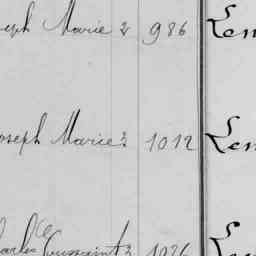 eph Marie 2 986 Len
oseph Marie 2 1012 Len
harles Toussaint 2 1026 Len